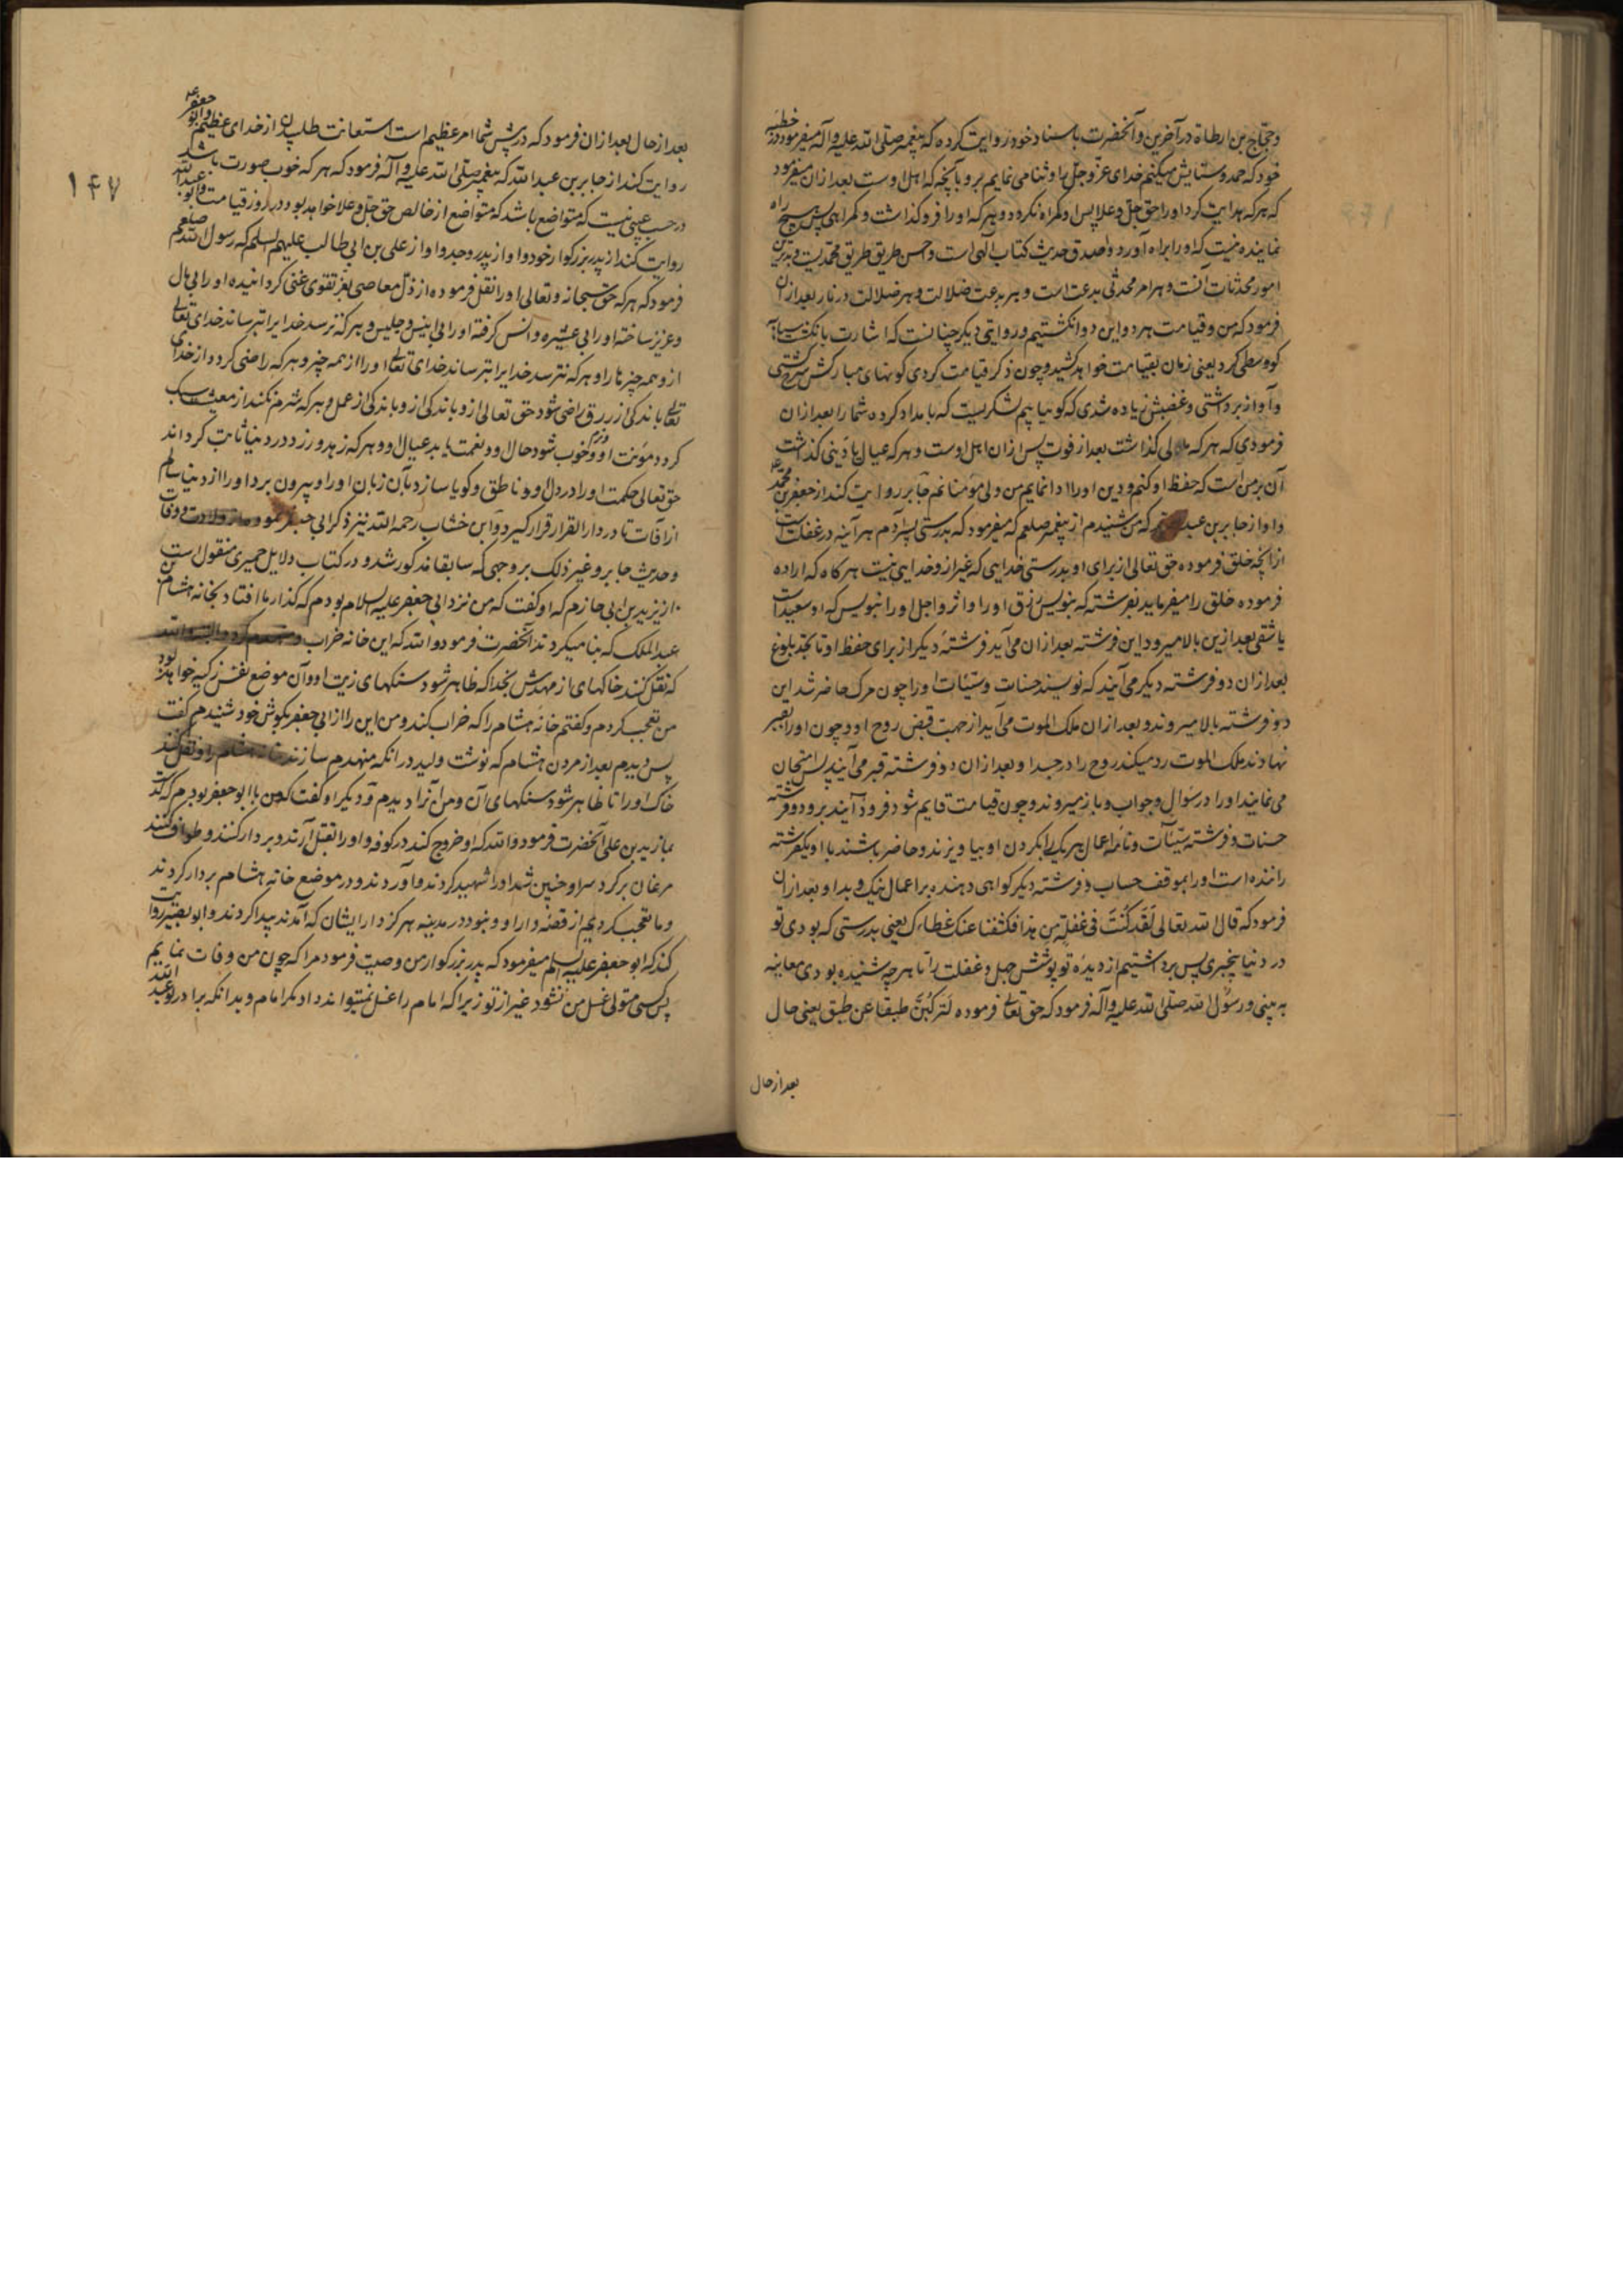 وحجاج بن ارطاة در آخرین و آنحضرت باسناد خود روایت کرده که پیغمبر صلی الله علیه وآله میفرمود در خطبه
خود که حمد و ستایش میکنم خدای عزّ و جلّ را و ثنا می نمایم برو بآنچه که اهل اوست بعد ازان میفرمود
که هرکه هدایت کرد او را حق جلّ و علا پس او گمراه نگردد و هرکه او را فرو گذاشت و گمراهی پس هیچ راه
نماینده نیست که او را براه آورد و اصدق حدیث کتاب الهی است و احسن طریق طریق محمدیست و بدترین
امور محدثات آنست و هر امر محدثی بدعت است و هر بدعت ضلالت و هر ضلالت در نار بعد ازان
فرمود که من و قیامت هر دو این دو انگشتیم و روایتی دیگر چنانست که اشارت بانگشت سبابه
کو وسطی کرد یعنی زمان بقیامت خواهد کشید و چون ذکر قیامت کردی گونهای مبارکش سرخ گشتی
و آواز برداشتی و غضبش زیاده شدی که گوئیا بیم لشکریست که بامداد کرده شما را بعد ازان
فرمودی که هرکه مالی گذاشت بعد از فوت پس ازان اهل اوست و هرکه عیال یا دینی گذاشت
آن بر من است که حفظ او کنم و دین او را ادا نمایم من ولی مؤمنانم جابر روایت کند از جعفر بن محمد
و او از جابر بن عبد که من شنیدم از پیغمبر صلعم که میفرمود که بدرستی پسر آدم هر آینه در غفلت است
از آنچه خلق فرموده حق تعالی از برای او بدرستی خدایی که غیر از و خدایی نیست هرگاه که اراده
فرموده خلق را میفرماید بفرشته که بنویس رزق او را و اثر و اجل او را بنویس که او سعید است
یا شقی بعد ازین بالا میرود این فرشته بعد ازان می آید فرشتهٔ دیگر از برای حفظ او تا بحد بلوغ
بعد ازان دو فرشته دیگر می آیند که نویسند حسنات و سیّئات او را چون مرگ حاضر شد این
دو فرشته بالا میروند و بعد ازان ملک الموت می آید از جهت قبض روح او و چون او را بقبر
نهادند ملک الموت رد میکند روح را در جسد او بعد ازان دو فرشته قبر می آیند پس امتحان
می نمایند او را در سؤال و جواب و باز میروند و چون قیامت قایم شود فرود آیند برو دو فرشته
حسنات و فرشته سیّئات و نامه اعمال هریک را بگردن او بیاویزند و حاضر باشند با او یکفرشته
راننده است او را بموقف حساب و فرشته دیگر گواهی دهنده بر اعمال نیک و بد او بعد ازان
فرمود که قال الله تعالی لَقَد کُنتَ فی غفلةٍ مِن هذا فکشفنا عنک غطاءک یعنی بدرستی که بودی تو
در دنیا بیخبری پس برداشتیم از دیدهٔ تو پوشش جهل و غفلت را تا هرچه شنیده بودی معاینه
به بینی و رسول الله صلی الله علیه وآله فرمود که حق تعالی فرموده لَتَرکَبُنَّ طبقا عن طبق یعنی حال
بعد از حال
۱۴۷
بعد از حال بعد ازان فرمود که در پیش شما امر عظیم است استعانت طلبید از خدای عظیم و ابو جعفر ع
روایت کند از جابر بن عبد الله که پیغمبر صلی الله علیه وآله فرمود که هرکه خوب صورت باشد
در حسب عیبی نیست که متواضع باشد که متواضع از خالص حق جلّ و علا خواهد بود در روز قیامت و ابو عبد الله
روایت کند از پدر بزرگوار خود و او از پدر و جد و او از علی بن ابی طالب علیهم السلم که رسول الله صلعم
فرمود که هرکه حق سبحانه و تعالی او را نقل فرموده از ذلّ معاصی بعز تقوی غنی گردانیده او را بی مال
و عزیز ساخته او را بی عشیره و انس گرفته او را بی انیس و جلیس و هرکه ترسد خدایرا بترساند خدای تعالی
ازو همه چیز ها را و هرکه نترسد خدایرا بترساند خدای تعالی او را از همه چیز و هرکه راضی گردد از خدای
تعالی باندکی از رزق راضی شود حق تعالی ازو باندکی ازو باندکی از عمل و هرکه شرم نکند از معیشت سبک
گردد مؤنت او و خوب شود حال او و نعمت یابد عیال او و هرکه زهد ورزد در دنیا ثابت گرداند
حق تعالی حکمت او را در دل او و ناطق و گویا سازد بآن زبان او را و بیرون برد او را از دنیا سالم
از آفات تا در دار القرار قرار گیرد و ابن خشاب رحمه الله نیز ذکر ابی جعفر نموده ولادت و وفات
و حدیث جابر و غیر ذلک بر وجهی که سابقا مذکور شد و در کتاب دلایل حمیری منقول است
از زید بن ابی حازم که او گفت که من نزد ابی جعفر علیه السلام بودم که گذار ما افتاد بخانه هشام بن
عبد الملک که بنا میکردند آنحضرت فرمود والله که این خانه خراب و منهدم گردد والله
که نقل کنند خاکهای از مهدمش بخدا که ظاهر شود سنگهای زیت او و آن موضع نفس زکیه خواهد بود
من تعجب کردم و گفتم خانهٔ هشام را که خراب کند و من این را از ابی جعفر بگوش خود شنیدم گفت
پس دیدم بعد از مردن هشام که نوشت ولید در انکه منهدم سازند خانه هشام را و نقل کنند
خاک او را تا ظاهر شود سنگهای آن و من آنرا دیدم و دیگر او گفت که من با ابو جعفر بودم که گذشت
بما زید بن علی آنحضرت فرمود والله که او خروج کند در کوفه و او را بقتل آرند و بر دار کنند و طواف کنند
مرغان بر گرد سر او چنین شد او را شهید کردند و آوردند و در موضع خانه هشام بردار کردند
و ما تعجب کردیم از قصّهٔ دار او و نبود در مدینه هرگز دار ایشان که آمدند پیدا کردند و ابو بصیر روایت
کند که ابو جعفر علیه السلم میفرمود که پدر بزرگوار من وصیت فرمود مرا که چون من وفات نمایم
پس کسی متولی غسل من نشود غیر از تو زیرا که امام را غسل نمیتواند داد مگر امام و بدانکه برادر تو عبد الله